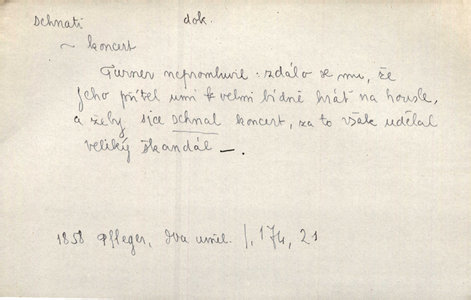 schnati dok.
~ koncert
Turner nepromluvil : zdálo se mu, že
jeho přítel umí velmi bídně hrát na housle,
a žeby sice schnal koncert, za to však udělal
veliký škandál —.
1858 Pfleger, Dva uměl. I, 174, 21